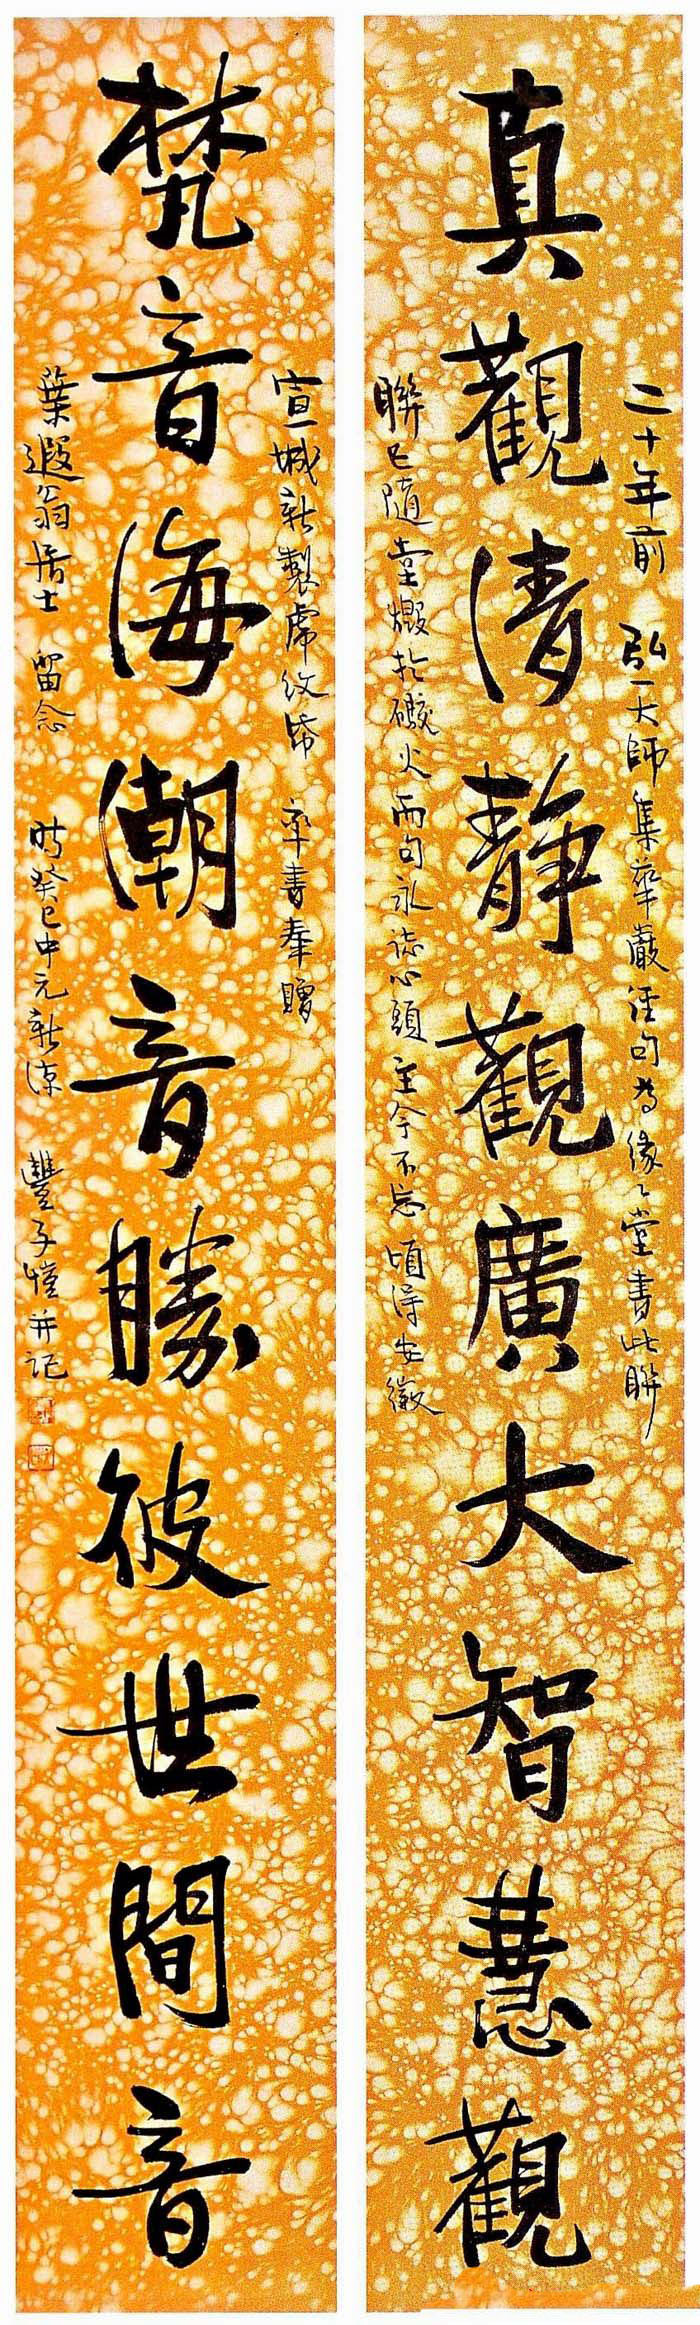 二十年前 弘一大師集華嚴經句為緣々堂書此聯
真觀清靜觀廣大智慧觀
聯已隨堂燬於礮火而句永誌心頭至今不忘頃得安徽
宣城新製虎紋帋 率書奉贈
梵音海潮音勝彼世間音
葉遐翁居士 留念 時癸巳中元新涼 豐子愷并記